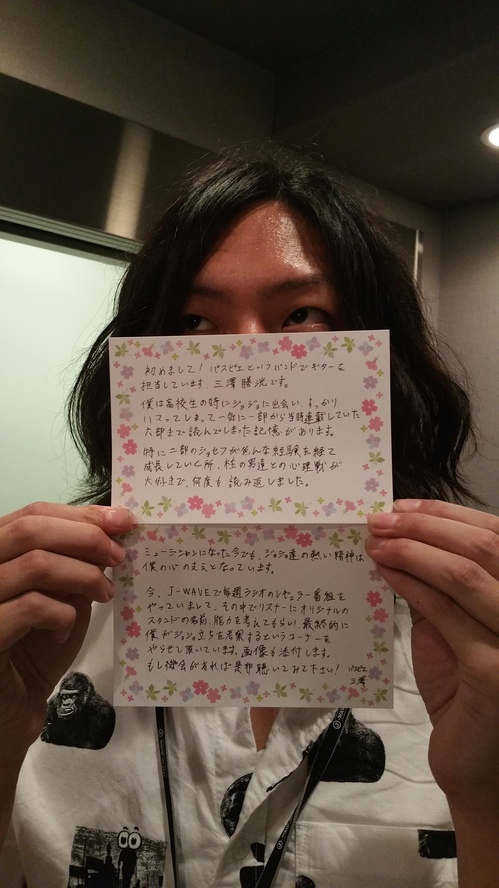 初めまして！パスピエというバンドでギターを
担当しています、三澤勝洸です。
僕は高校生の時にジョジョに出会い、すっかり
ハマってしまって一気に一部から当時連載していた
六部まで読んでしまった記憶があります。
特に二部のジョセフが色んな経験を経て
成長していく所、柱の男達との心理戦が
大好きで、何度も読み返しました。
ミュージシャンになった今でも、ジョジョ達の熱い精神は
僕の心の支えとなっています。
今、J-WAVEで毎週ラジオのレギュラー番組を
やっていまして、その中でリスナーにオリジナルの
スタンドの名前、能力を考えてもらい、最終的に
僕がジョジョ立ちを考案するというコーナーを
やらせて頂いています。画像も添付します。
もし機会があれば是非聴いてみて下さい！ パスピエ
三澤